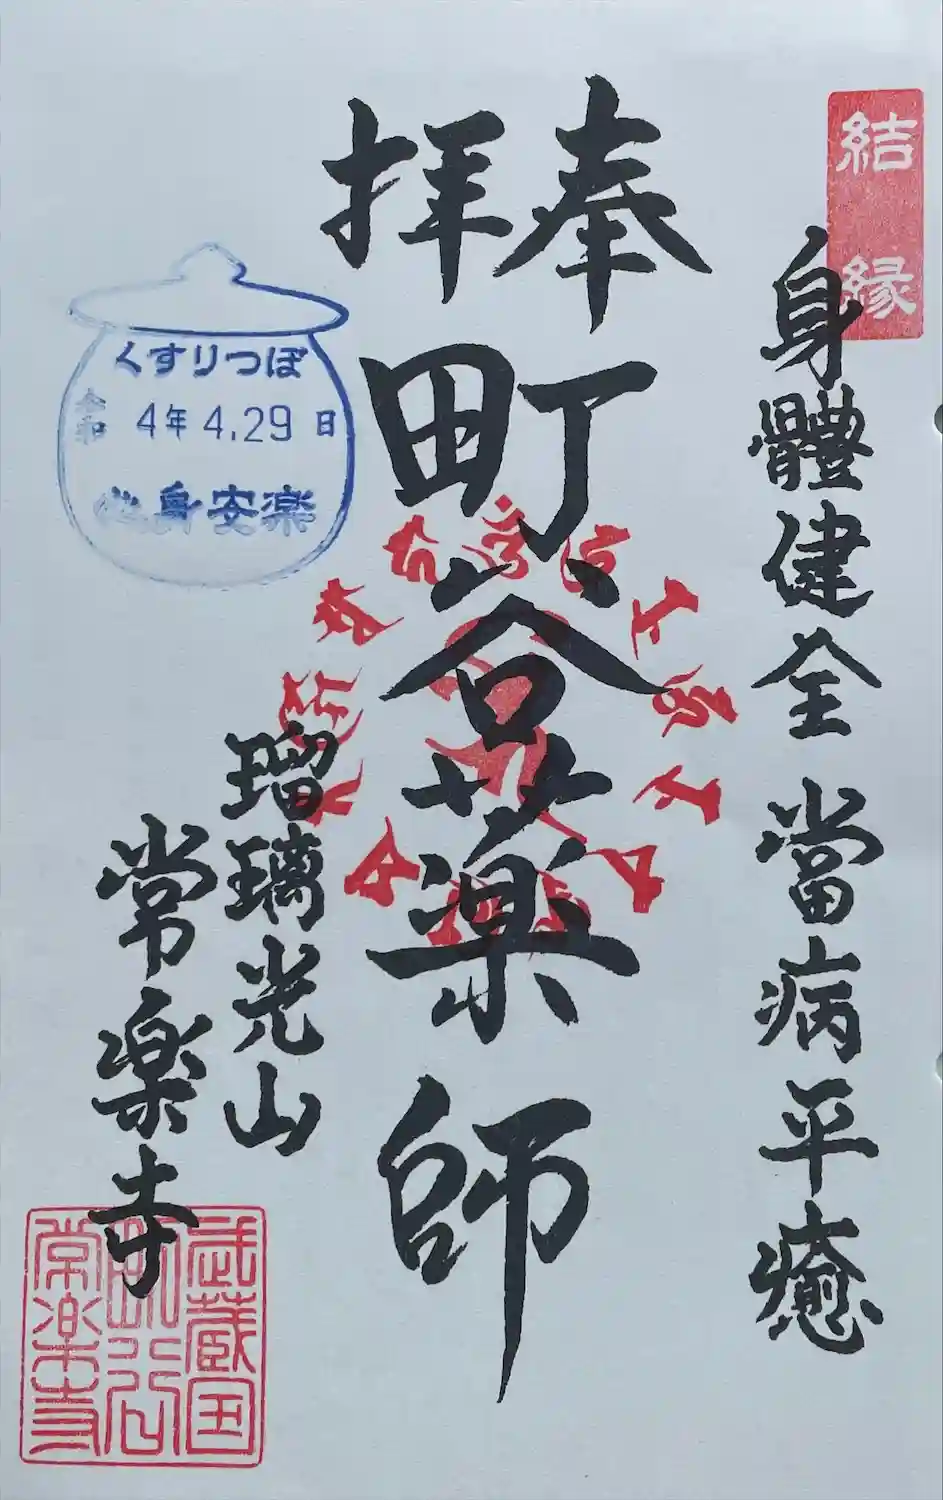 結縁
身體健全 當病平癒
奉拝
町谷薬師
くすりつぼ
令和 4年 4.29日
心身安楽
瑠璃光山
常楽寺
武蔵国
町谷
常楽寺